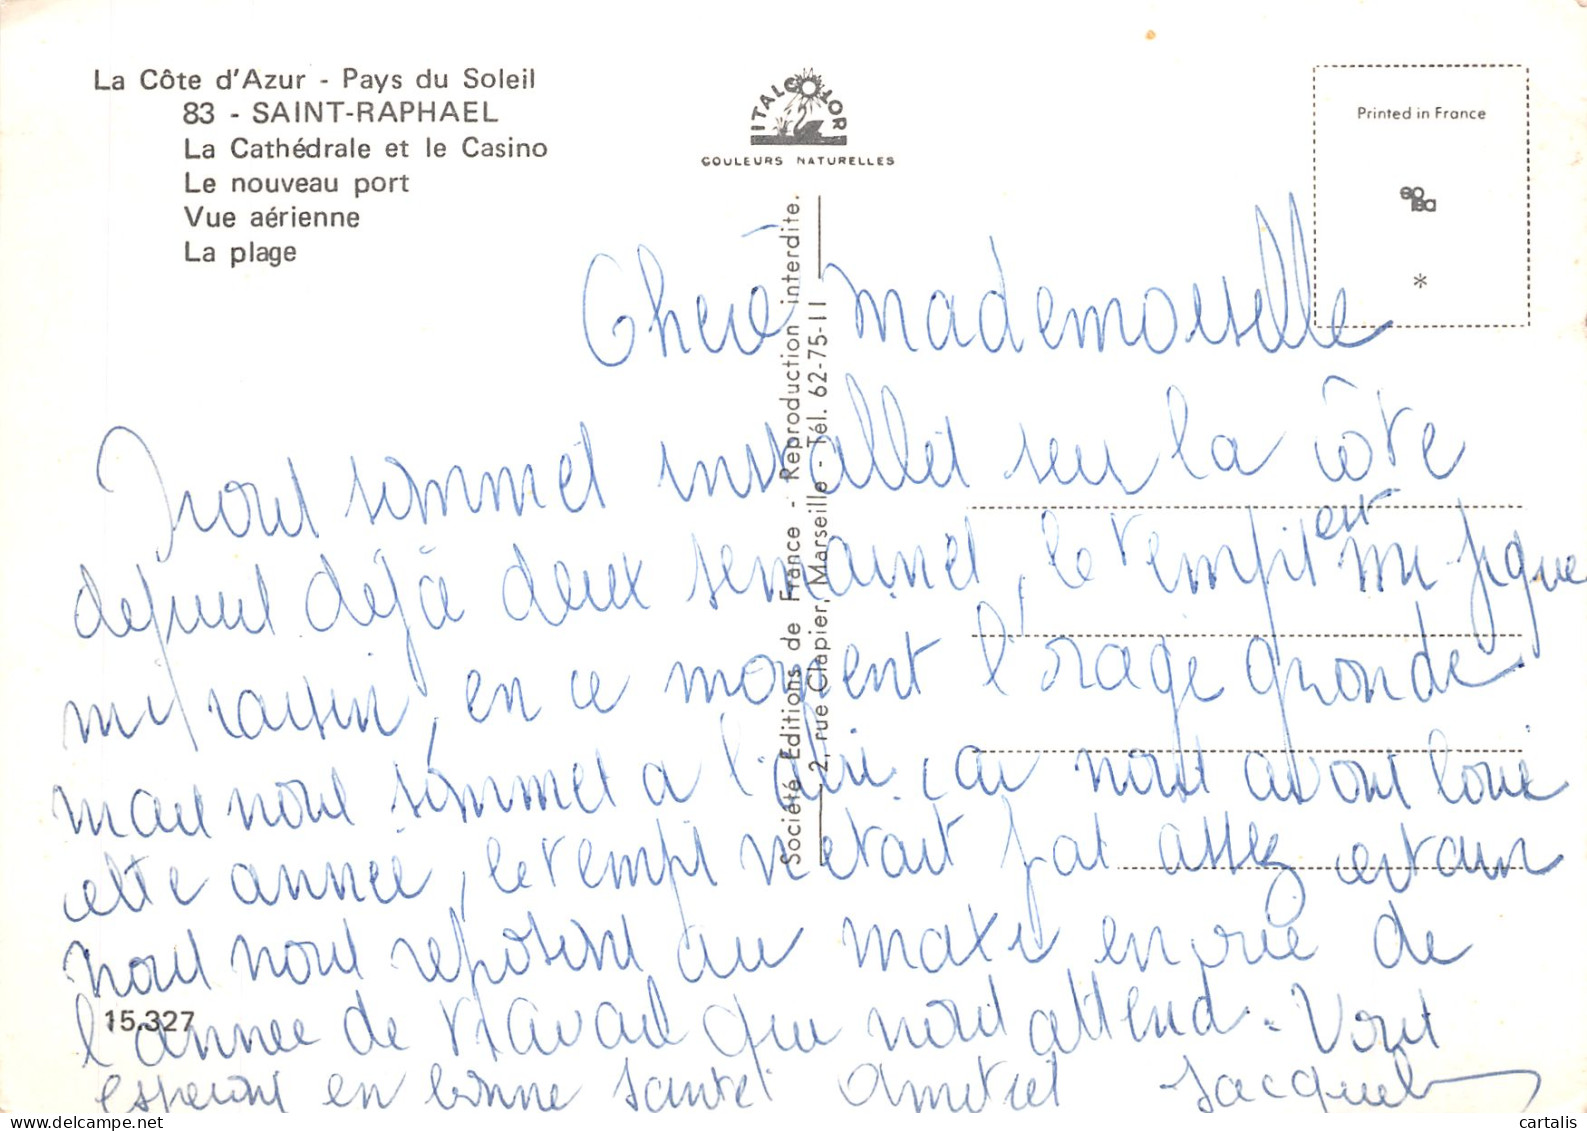 La Côte d'Azur - Pays du Soleil
83 - SAINT-RAPHAEL
La Cathédrale et le Casino
Le nouveau port
Vue aérienne
La plage
ITALCOLOR
COULEURS NATURELLES
Printed in France
*
Société Editions de France - Reproduction interdite.
2, rue Clapier, Marseille - Tél. 62-75-11
Chère mademoiselle
Nous sommes installés sur la côte
depuis déjà deux semaines, le temps est mi-figue
mi raisin, en ce moment l'orage gronde
mais nous sommes a l'abri car nous avons loué
cette année, le temps n'etait pas assez certain
nous nous reposons au maxi en vue de
l'année de travail que nous attend. Vous
esperons en bonne santé. Amitiés Jacquel
15.327
cartalis